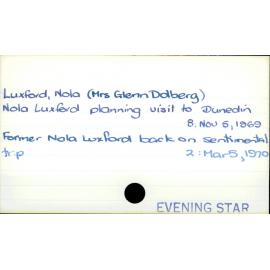 Luxford, Nola (Mrs Glenn Dolberg)
Nola Luxford planning visit to Dunedin
8. Nov 5, 1969
Former Nola Luxford back on sentimental
trip 2: Mar 5, 1970
EVENING STAR